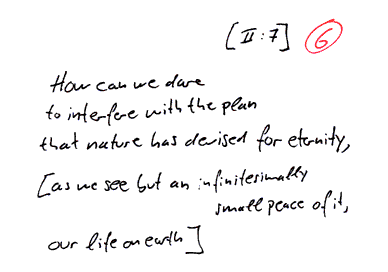 [II:7] 6
How can we dare
to interfere with the plan
that nature has devised for eternity,
[as we see but an infinitesimally
small peace of it,
our life on earth]